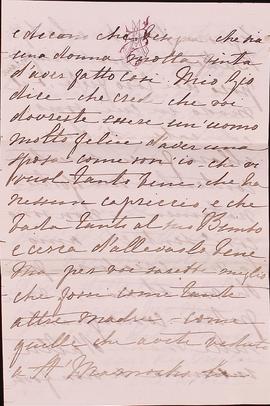 e dicono che che sia
una donna
d'aver fatto così Mio Zio
dice che che voi
dovreste essere un'uomo
molto felice d'aver una
sposa come son'io che vi
vuol tanto bene, che ha
nessun capriccio, e che
bada tanto al suo Bimbo
e cerca d'allevarlo bene
Ma per voi sarebbe meglio
che fossi come tante
altre madri come
quelle che avete veduto
a